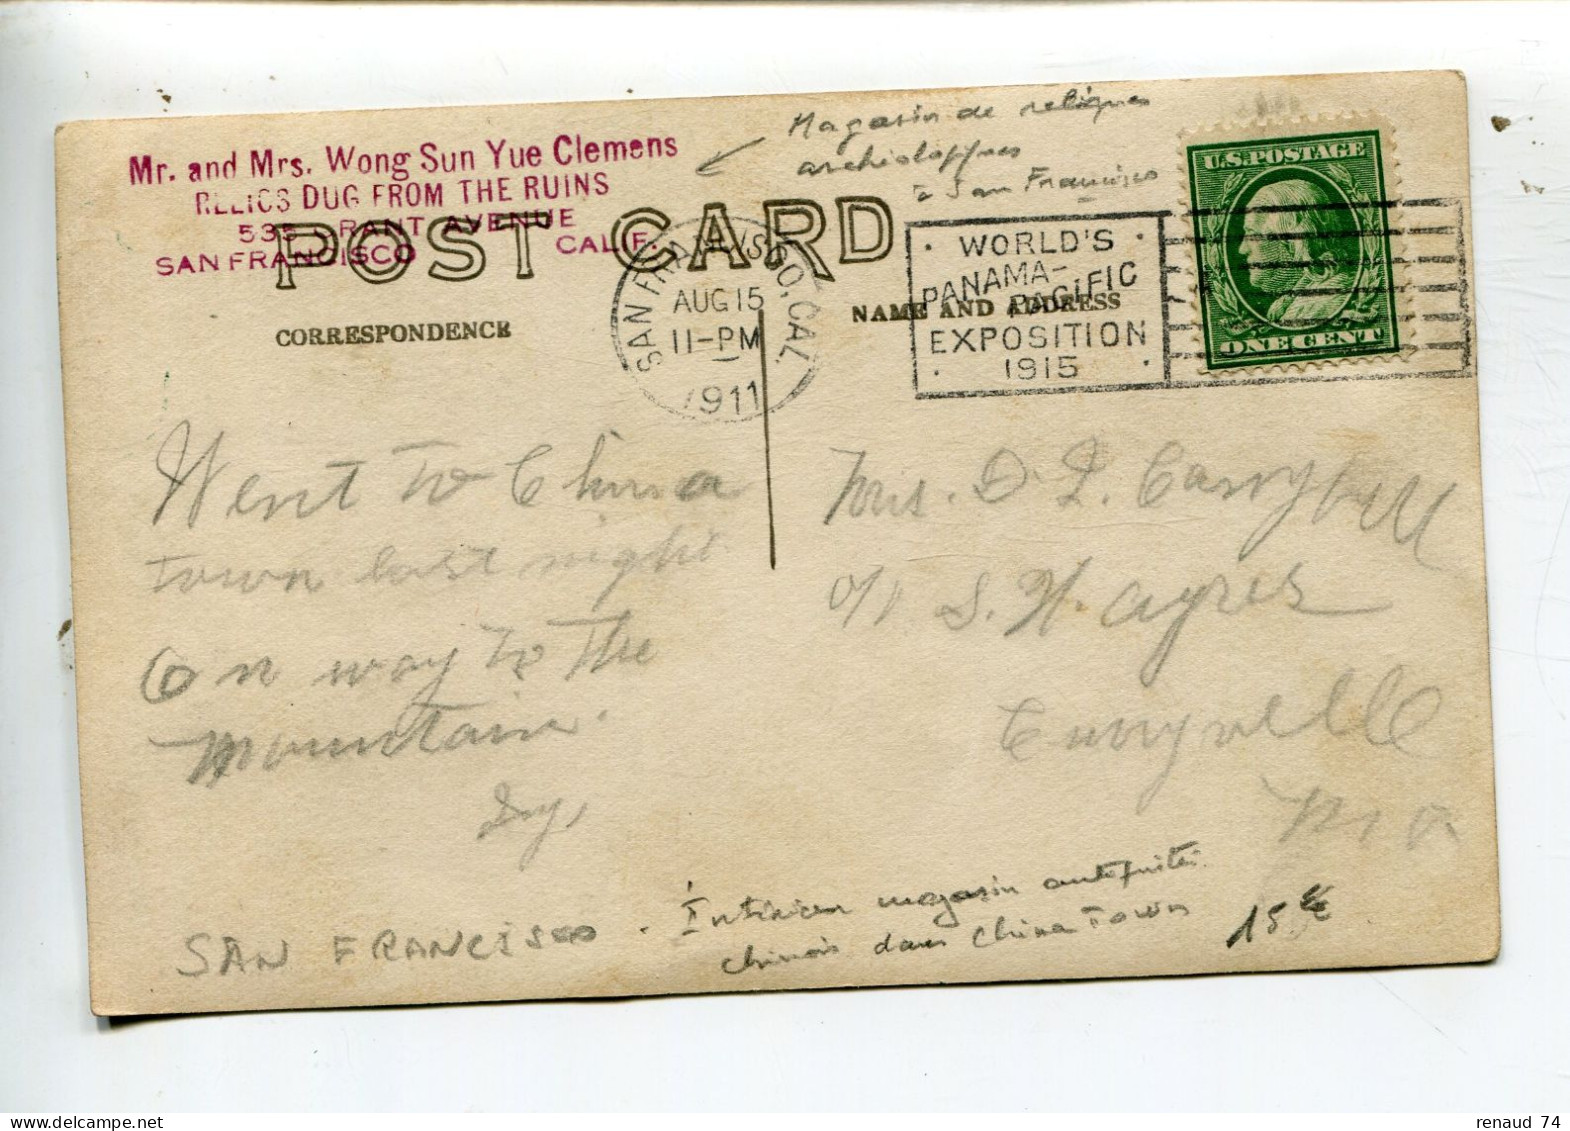 Mr. and Mrs. Wong Sun Yue Clemens
RELICS DUG FROM THE RUINS
535 GRANT AVENUE
SAN FRANCISCO CALIF.
Magasin de reliques
archéologiques
à San Francisco
U.S. POSTAGE
ONE CENT
POST CARD
CORRESPONDENCE
NAME AND ADDRESS
SAN FRANCISCO, CAL.
AUG 15
11-PM
1911
WORLD'S
PANAMA-
PACIFIC
EXPOSITION
1915
Went to China
town last night
On way to the
mountain.
Mrs. D. I. Campbell
S. H. Ayres
Curryville
Mo
SAN FRANCISCO . Intérieur magasin antiquités
chinois dans China Town
15 €
renaud 74